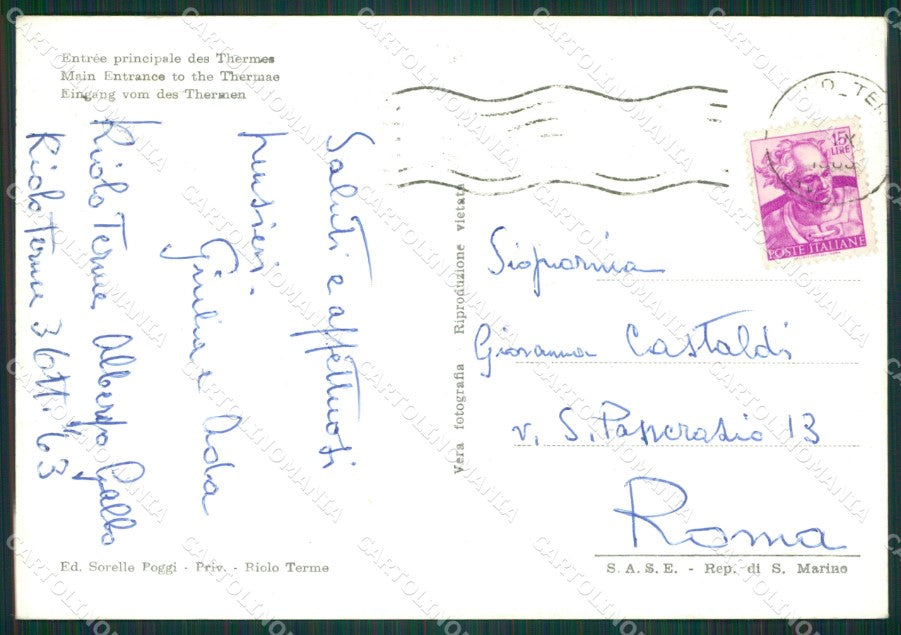 Entrée principale des Thermes
Main Entrance to the Thermae
Eingang vom des Thermen
Saluti e affettuosi
pensieri.
Giulia e Ada
Riolo Terme Albergo Gallo
Riolo Terme 3 Ott. 63
Vera fotografia Riproduzione vietata
O_TE
15
LIRE
POSTE ITALIANE
Signorina
Giovanna Castaldi
v. S. Pancrazio 13
Roma
Ed. Sorelle Poggi - Priv. - Riolo Terme
S. A. S. E. - Rep. di S. Marino
CARTOLINOMANIA